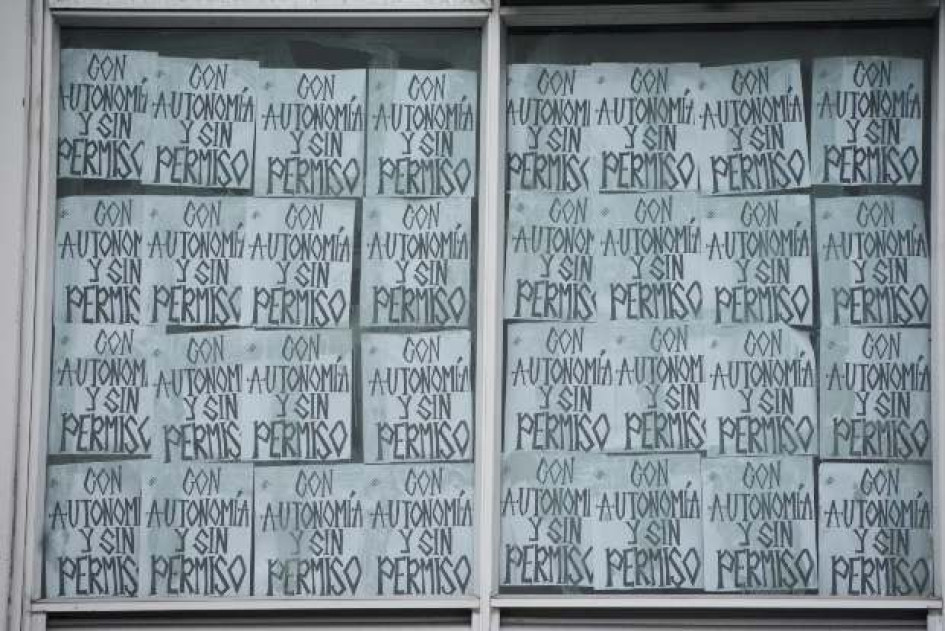 CON
AUTONOMÍ
Y SIN
PERMISO
CON
AUTONOMÍA
Y SIN
PERMISO
CON
AUTONOMÍA
Y SIN
PERMISO
CON
AUTONOMÍA
Y SIN
PERMISO
CON
AUTONOMI
Y SIN
PERMISO
CON
AUTONOMÍA
Y SIN
PERMISO
CON
AUTONOMÍA
Y SIN
PERMISO
CON
AUTONOMÍA
Y SIN
PERMISO
CON
AUTONOM
Y SIN
PERMIS
CON
AUTONOMÍA
Y SIN
PERMISO
CON
AUTONOMÍA
Y SIN
PERMISO
CON
AUTONOMÍA
Y SIN
PERMISO
CON
AUTONOM
Y SIN
PERMISO
CON
AUTONOMÍA
Y SIN
PERMISO
CON
AUTONOMÍA
Y SIN
PERMISO
CON
AUTONOMÍA
Y SIN
PERMISO
CON
AUTONOM
Y SIN
PERMISO
CON
AUTONOM
Y SIN
PERMIS
CON
AUTONOMÍA
Y SIN
PERMISO
CON
AUTONOMÍA
Y SIN
PERMISO
CON
AUTONOMÍA
Y SIN
PERMISO
CON
AUTONOMÍ
Y SIN
PERMIS
CON
AUTONOMÍA
Y SIN
PERMISO
CON
AUTONOMÍA
Y SIN
PERMISO
CON
AUTONOMI
Y SIN
PERMIS
CON
AUTONOMÍA
Y SIN
PERMISO
CON
AUTONOMÍA
Y SIN
PERMISO
CON
AUTONOMÍA
Y SIN
PERMISO
CON
AUTONOMI
Y SIN
PERMISO
CON
AUTONOMÍA
Y SIN
PERMISO
CON
AUTONOMÍA
Y SIN
PERMISO
CON
AUTONOMÍA
Y SIN
PERMISO